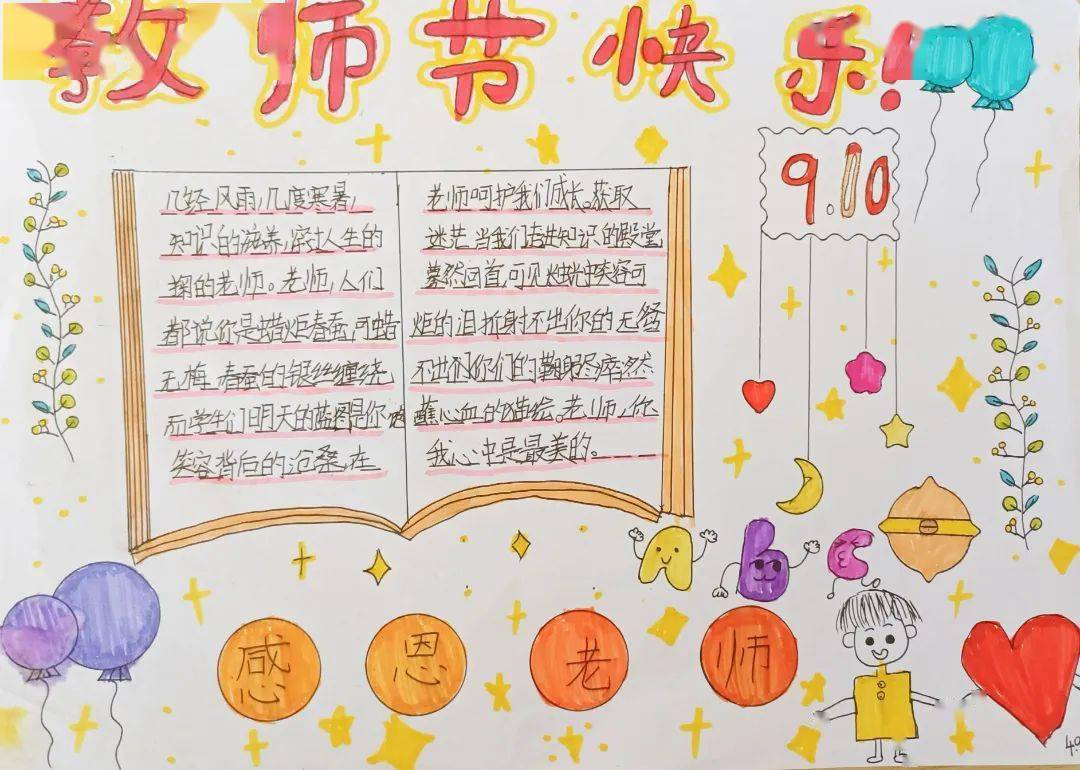 教师节快乐!
9.10
几经风雨,几度寒暑,
知识的滋养,人生的
的老师。老师,人们
都说你是蜡炬春蚕,可蜡
无 春蚕的银丝缠绕
而学生们明天的蓝图是你
笑容背后的沧桑,在
老师呵护我们成长。获取
迷茫当我们走进知识的殿堂
蓦然回首,可见烛光中笑容可
炬的泪折射不出你的无
不出你们的鞠躬尽瘁然
蘸心血的描绘。老师,你
我心中是最美的。
A b c
感恩老师